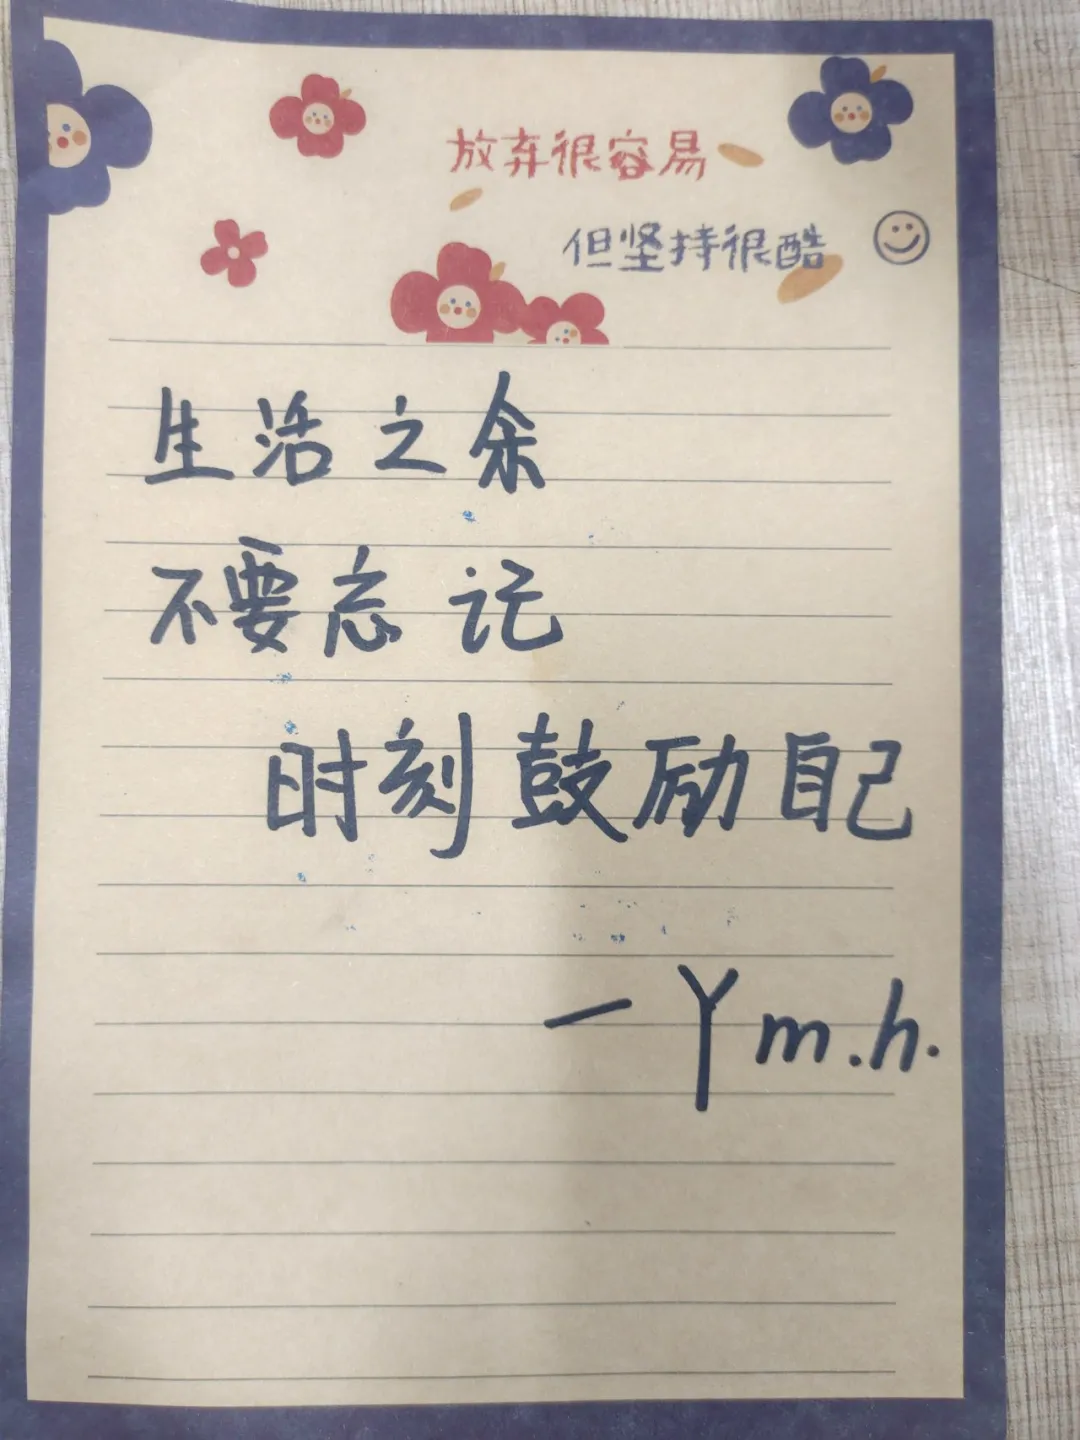 放弃很容易
但坚持很酷
生活之余
不要忘记
时刻鼓励自己
—Ym.h.